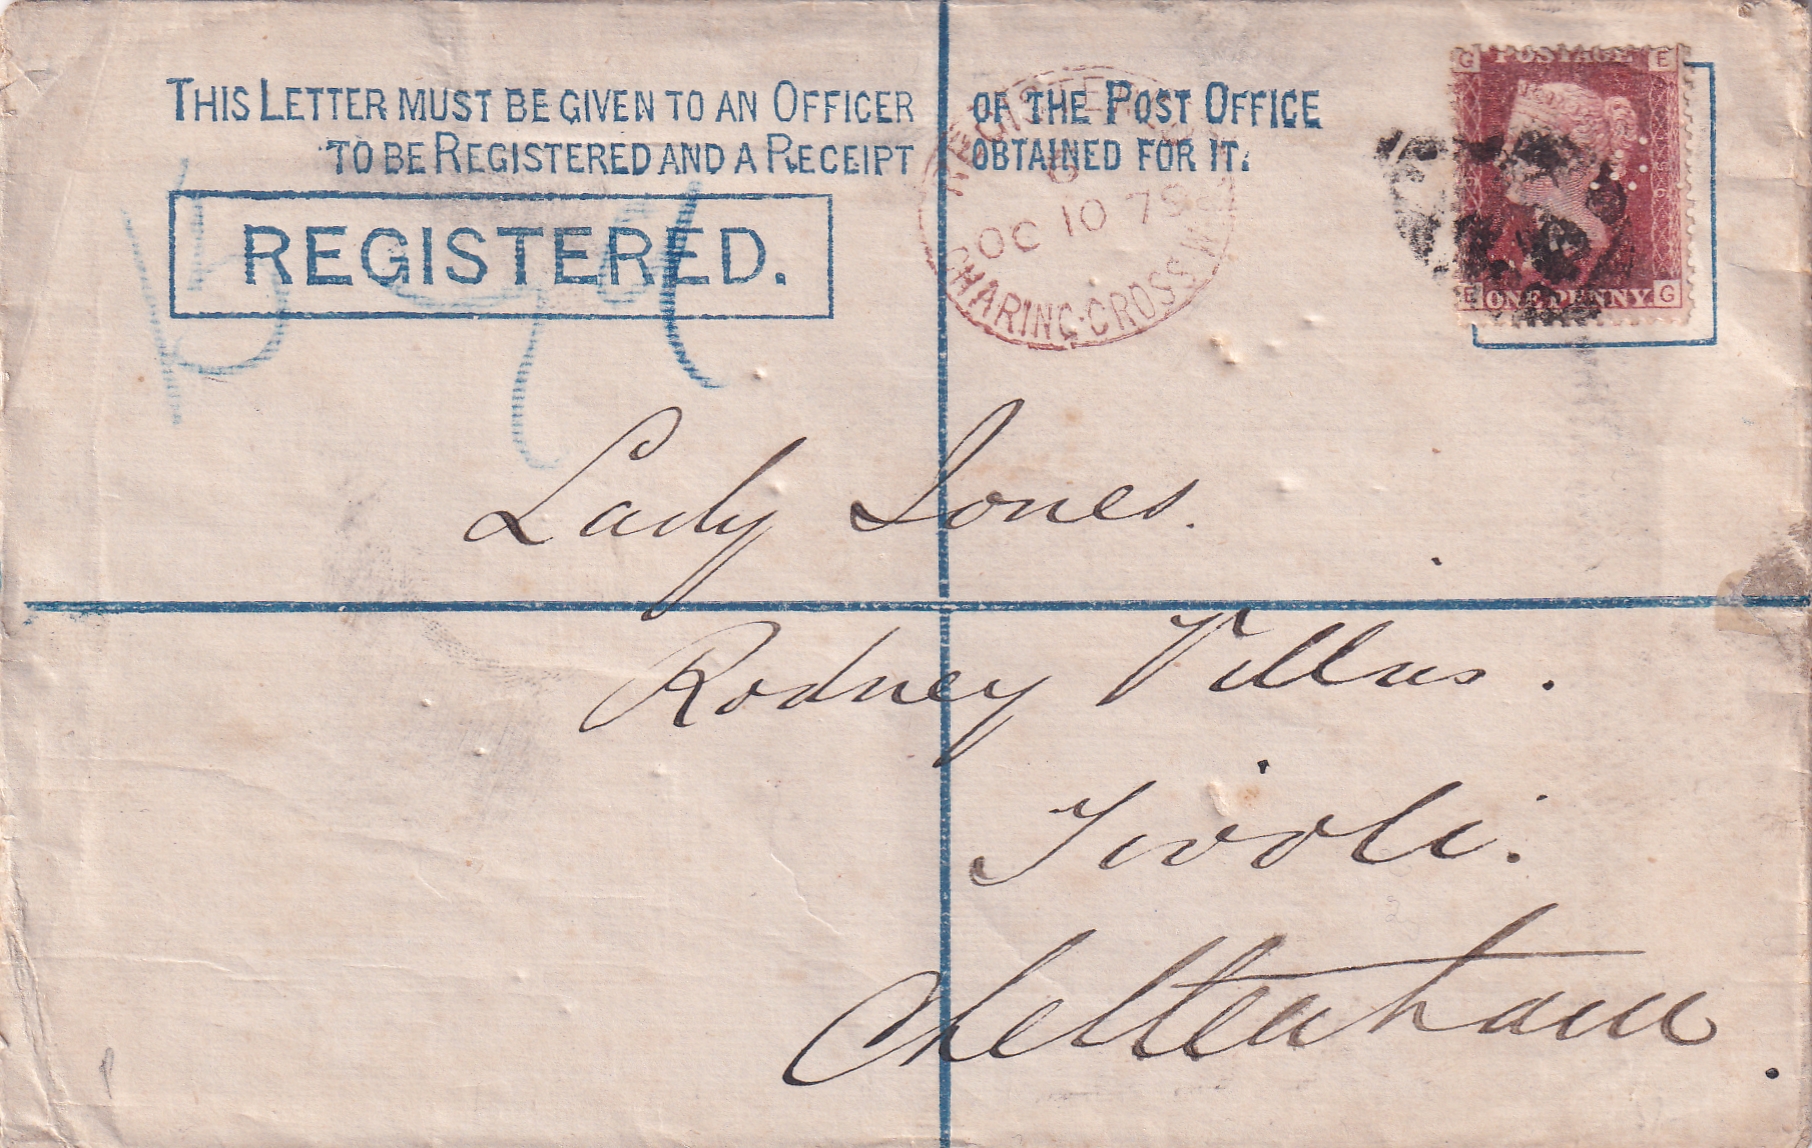 THIS LETTER MUST BE GIVEN TO AN OFFICER OF THE POST OFFICE
TO BE REGISTERED AND A RECEIPT OBTAINED FOR IT.
REGISTERED.
REGISTERED
OC 10 79
CHARING·CROSS.W.C
G POSTAGE E
E ONE PENNY G
Lady Jones.
Rodney Villas.
Tivoli.
Cheltenham.